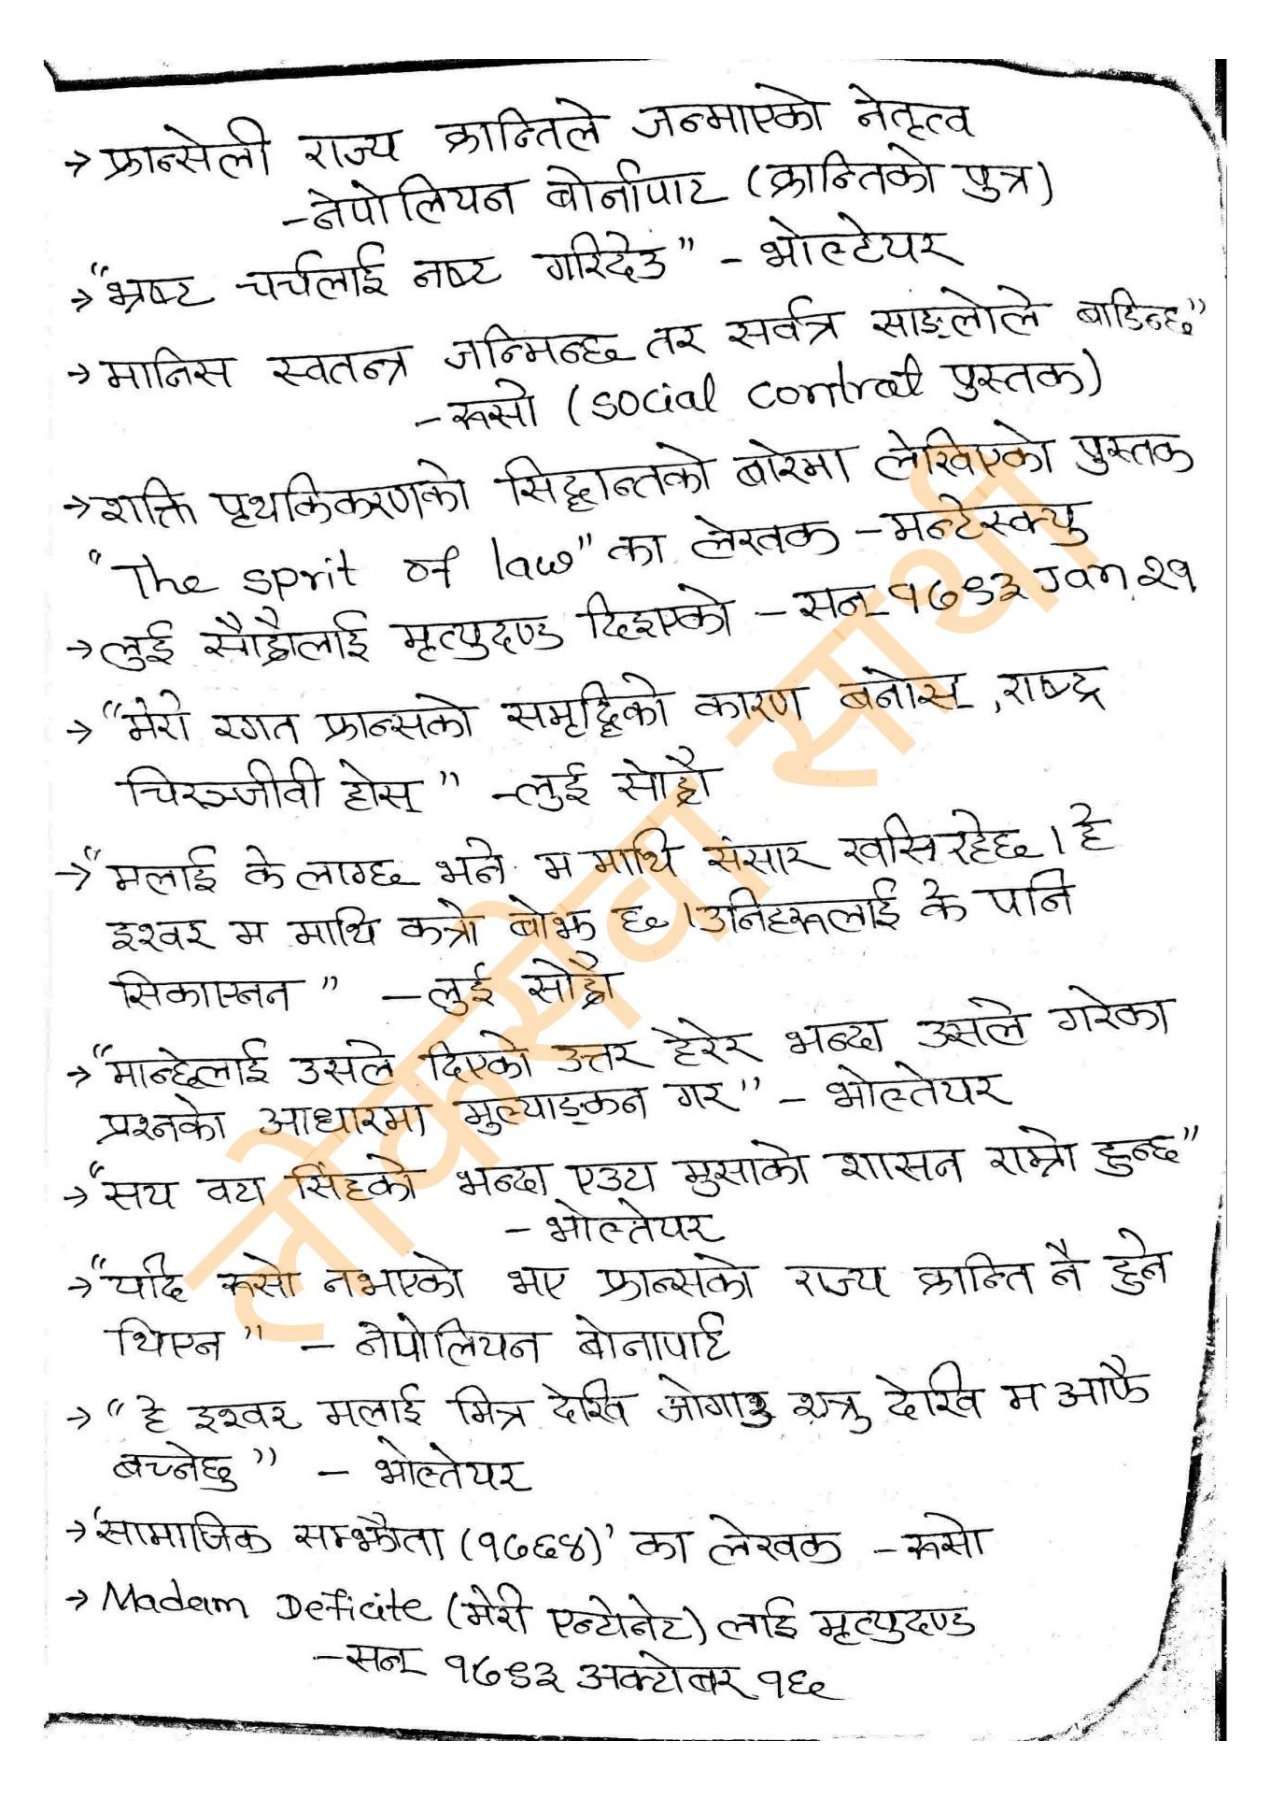 → फ्रान्सेली राज्य क्रान्तिले जन्माएको नेतृत्व
- नेपोलियन बोर्नापाट (क्रान्तिको पुत्र)
→ "भ्रष्ट चर्चलाई नष्ट गरिदेउ" - भोल्टेयर
→ मानिस स्वतन्त्र जन्मिन्छ तर सर्वत्र साङ्लोले बाडिन्छ"
- रूसो (social contract पुस्तक)
→ शक्ति पृथकिकरणको सिद्धान्तको बारेमा लेखिएको पुस्तक
"The sprit of law" का लेखक - मन्टेस्क्यु
→ लुई सौह्रौलाई मृत्युदण्ड दिइएको - सन् १७९३ Jan २१
→ "मेरो रगत फ्रान्सको समृद्धिको कारण बनोस्, राष्ट्र
चिरञ्जीवी होस्" - लुई सोह्रौ
→ "मलाई के लाग्छ भने म माथि संसार खसिरहेछ। हे
इश्वर म माथि कत्रो बोझ छ। उनिहरूलाई के पनि
सिकाएनन" - लुई सोह्रौ
→ "मान्छेलाई उसले दिएको उत्तर हेरेर भन्दा उसले गरेका
प्रश्नको आधारमा मुल्याङ्कन गर" - भोल्तेयर
→ "सय वटा सिंहको भन्दा एउटा मुसाको शासन राम्रो हुन्छ"
- भोल्तेयर
→ "यदि रूसो नभएको भए फ्रान्सको राज्य क्रान्ति नै हुने
थिएन" - नेपोलियन बोनापार्ट
→ "हे इश्वर मलाई मित्र देखि जोगाउ शत्रु देखि म आफै
बच्नेछु" - भोल्तेयर
→ 'सामाजिक सम्झौता (१७६४)' का लेखक - रूसो
→ Madam Deficite (मेरी एन्टोनेट) लाई मृत्युदण्ड
- सन् १७९३ अक्टोबर १६
लोकसेवा साथी